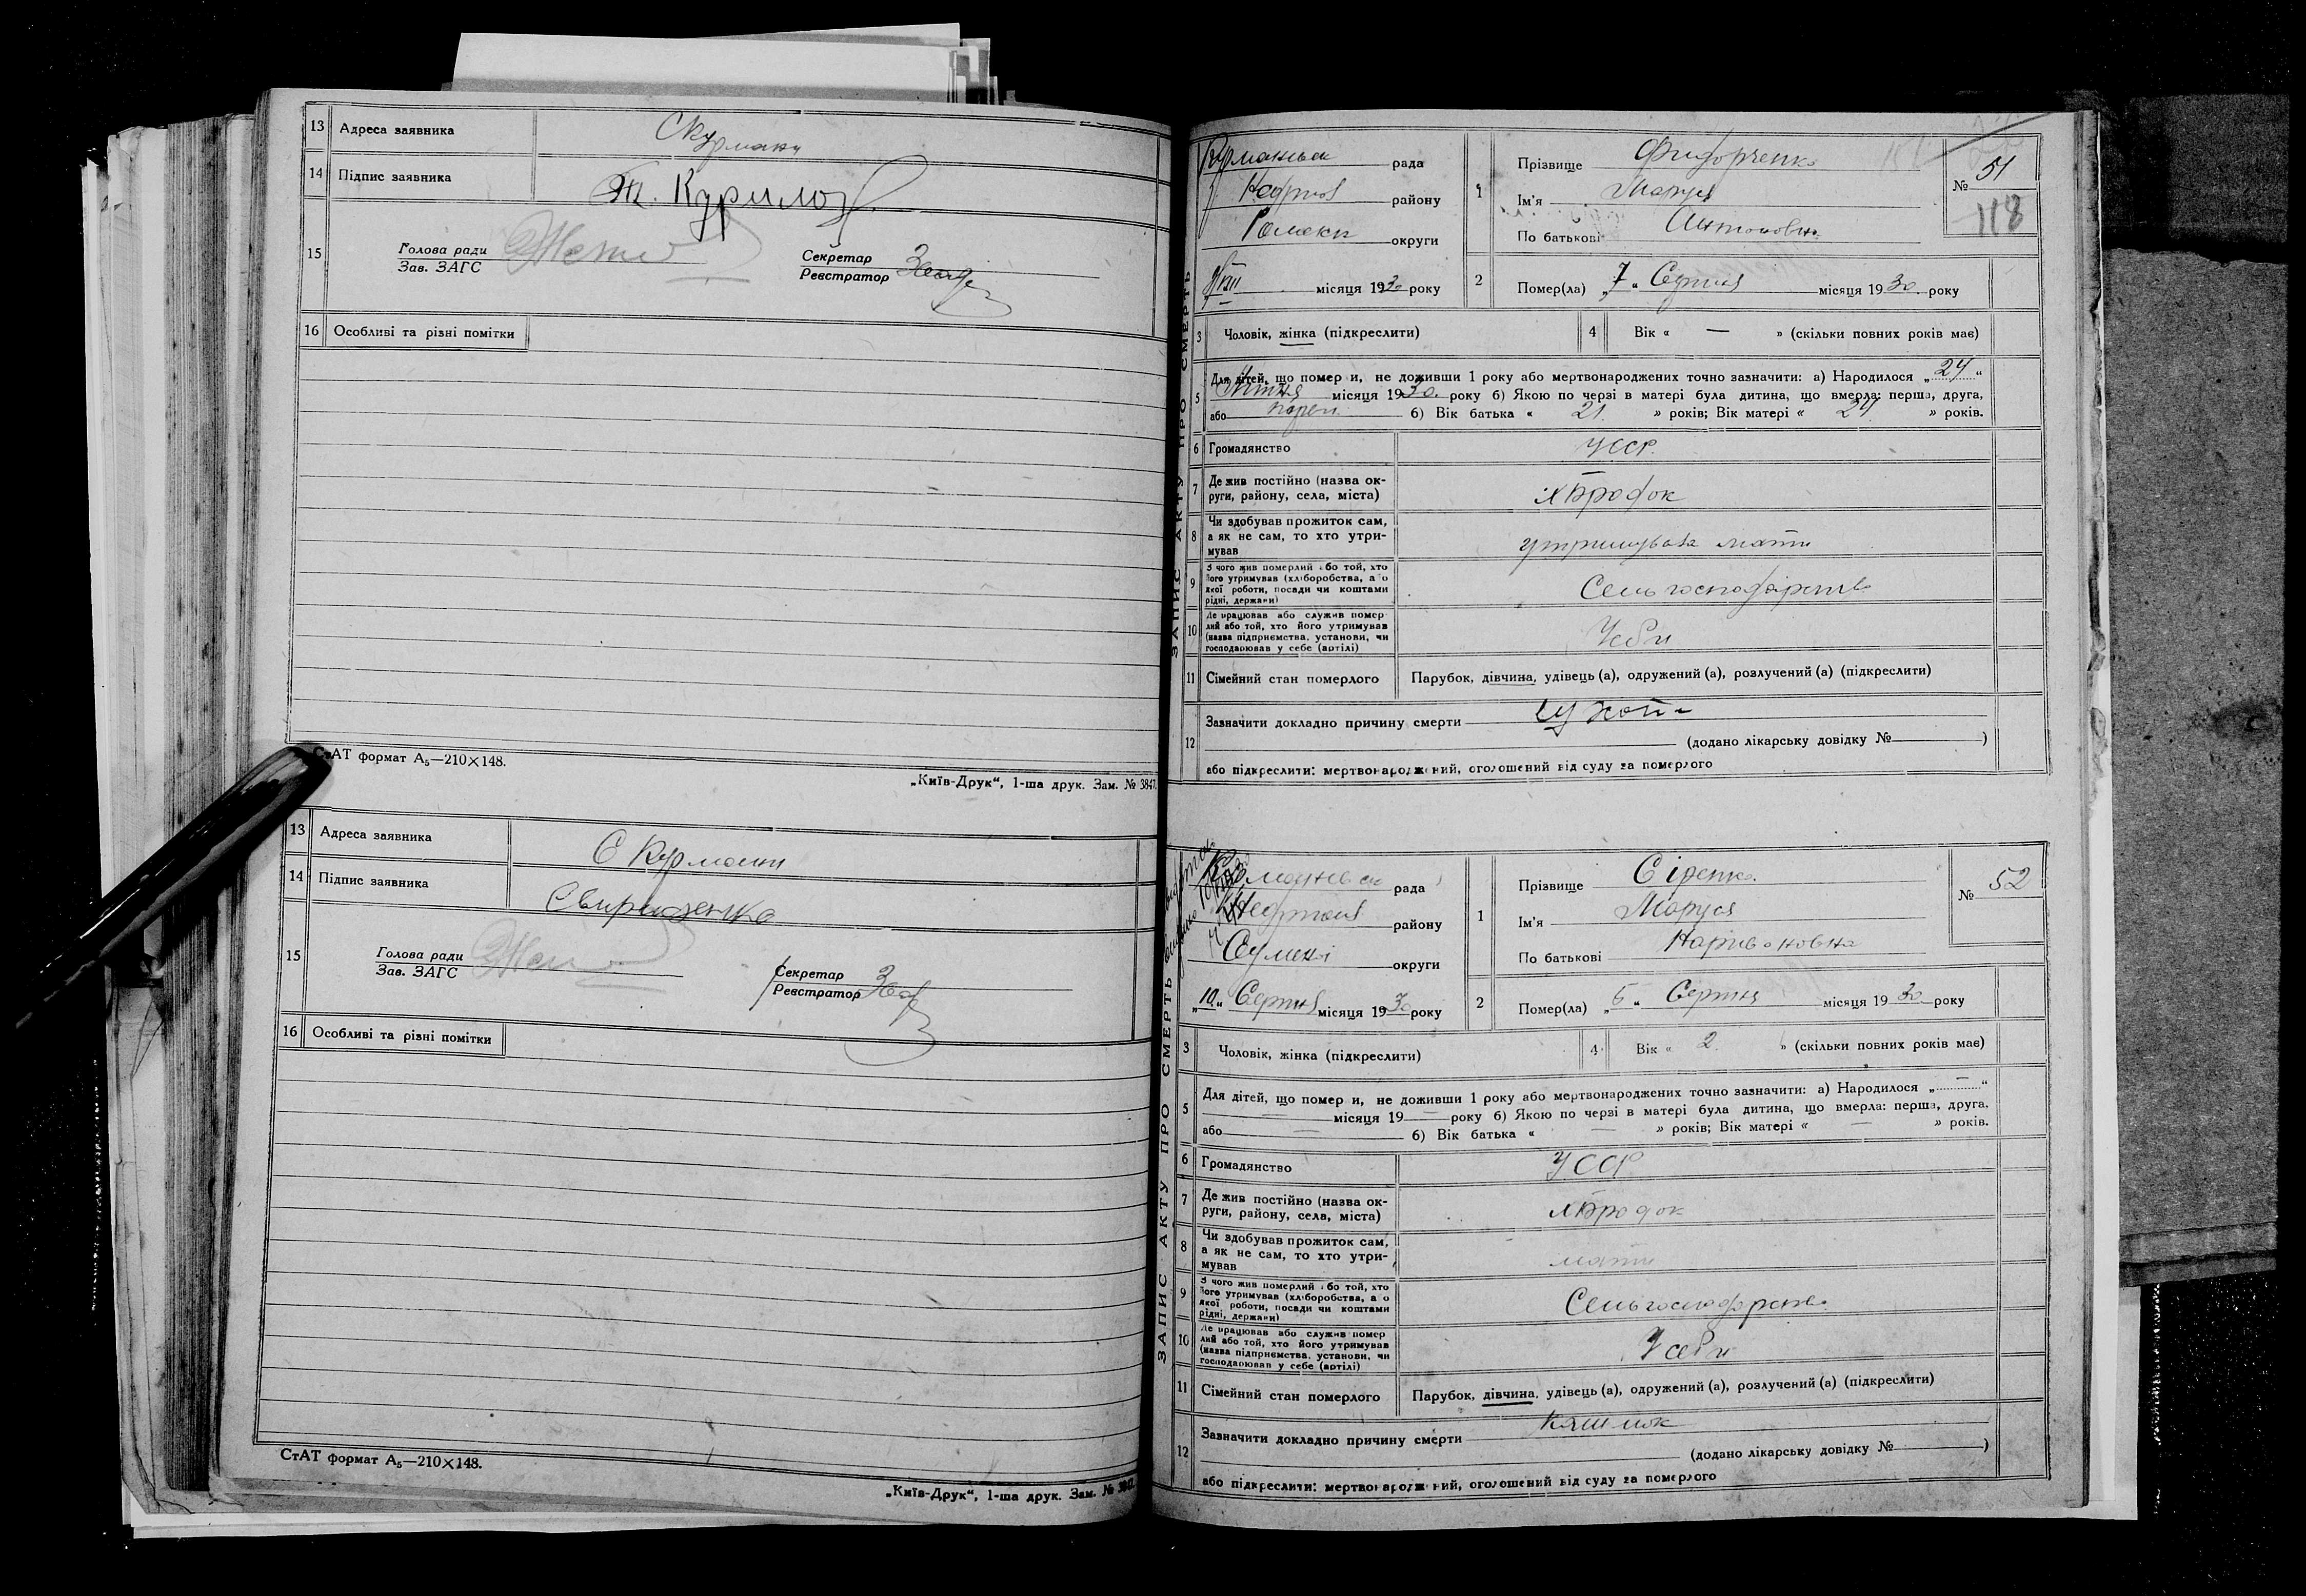 13 Адреса заявника С Курмани
14 Підпис заявника Т. Курило
15 Голова ради
Зав. ЗАГС
Секретар
Реєстратор
16 Особливі та різні помітки
СтАТ формат А₅—210×148.
„Київ-Друк“, 1-ша друк. Зам. № 3847.
13 Адреса заявника С Курмани
14 Підпис заявника Свириденко
15 Голова ради
Зав. ЗАГС
Секретар
Реєстратор
16 Особливі та різні помітки
СтАТ формат А₅—210×148.
„Київ-Друк“, 1-ша друк. Зам. № 3847.
ЗАПИС АКТУ ПРО СМЕРТЬ
рада
району
Роменськ округи
VIII місяця 1930 року
1 Прізвище
Ім'я Маруся
По батькові Антоновна
№ 51
118
2 Помер(ла) „7“ Серпня місяця 1930 року
3 Чоловік, жінка (підкреслити)
4 Вік « — » (скільки повних років має)
5 Для дітей, що померли, не доживши 1 року або мертвонароджених точно зазначити: а) Народилося „24“
місяця 1930 року б) Якою по черзі в матері була дитина, що вмерла: перша, друга,
або б) Вік батька « 21 » років; Вік матері « 24 » років.
6 Громадянство УССР
7 Де жив постійно (назва округи, району, села, міста) х Бродок
8 Чи здобував прожиток сам, а як не сам, то хто утримував утримувала мати
9 З чого жив померлий або той, хто його утримував (хліборобства, або якої роботи, посади чи коштами рідні, держави)
10 Де працював або служив померлий або той, хто його утримував (назва підприємства, установи, чи господарював у себе (артілі) У себи
11 Сімейний стан померлого Парубок, дівчина, удівець (а), одружений (а), розлучений (а) (підкреслити)
12 Зазначити докладно причину смерти
(додано лікарську довідку № )
або підкреслити: мертвонароджений, оголошений від суду за померлого
ЗАПИС АКТУ ПРО СМЕРТЬ
рада
району
Сумскі округи
„10“ Серпня місяця 1930 року
1 Прізвище Сіренко
Ім'я Маруся
По батькові
№ 52
2 Помер(ла) Серпня місяця 1930 року
3 Чоловік, жінка (підкреслити)
4 Вік « 2 » (скільки повних років має)
5 Для дітей, що померли, не доживши 1 року або мертвонароджених точно зазначити: а) Народилося „—“
— місяця 19— року б) Якою по черзі в матері була дитина, що вмерла: перша, друга,
або — б) Вік батька « — » років; Вік матері « — » років.
6 Громадянство УССР
7 Де жив постійно (назва округи, району, села, міста) х Бродок
8 Чи здобував прожиток сам, а як не сам, то хто утримував мати
9 З чого жив померлий або той, хто його утримував (хліборобства, або якої роботи, посади чи коштами рідні, держави)
10 Де працював або служив померлий або той, хто його утримував (назва підприємства, установи, чи господарював у себе (артілі) У себи
11 Сімейний стан померлого Парубок, дівчина, удівець (а), одружений (а), розлучений (а) (підкреслити)
12 Зазначити докладно причину смерти
(додано лікарську довідку № )
або підкреслити: мертвонароджений, оголошений від суду за померлого